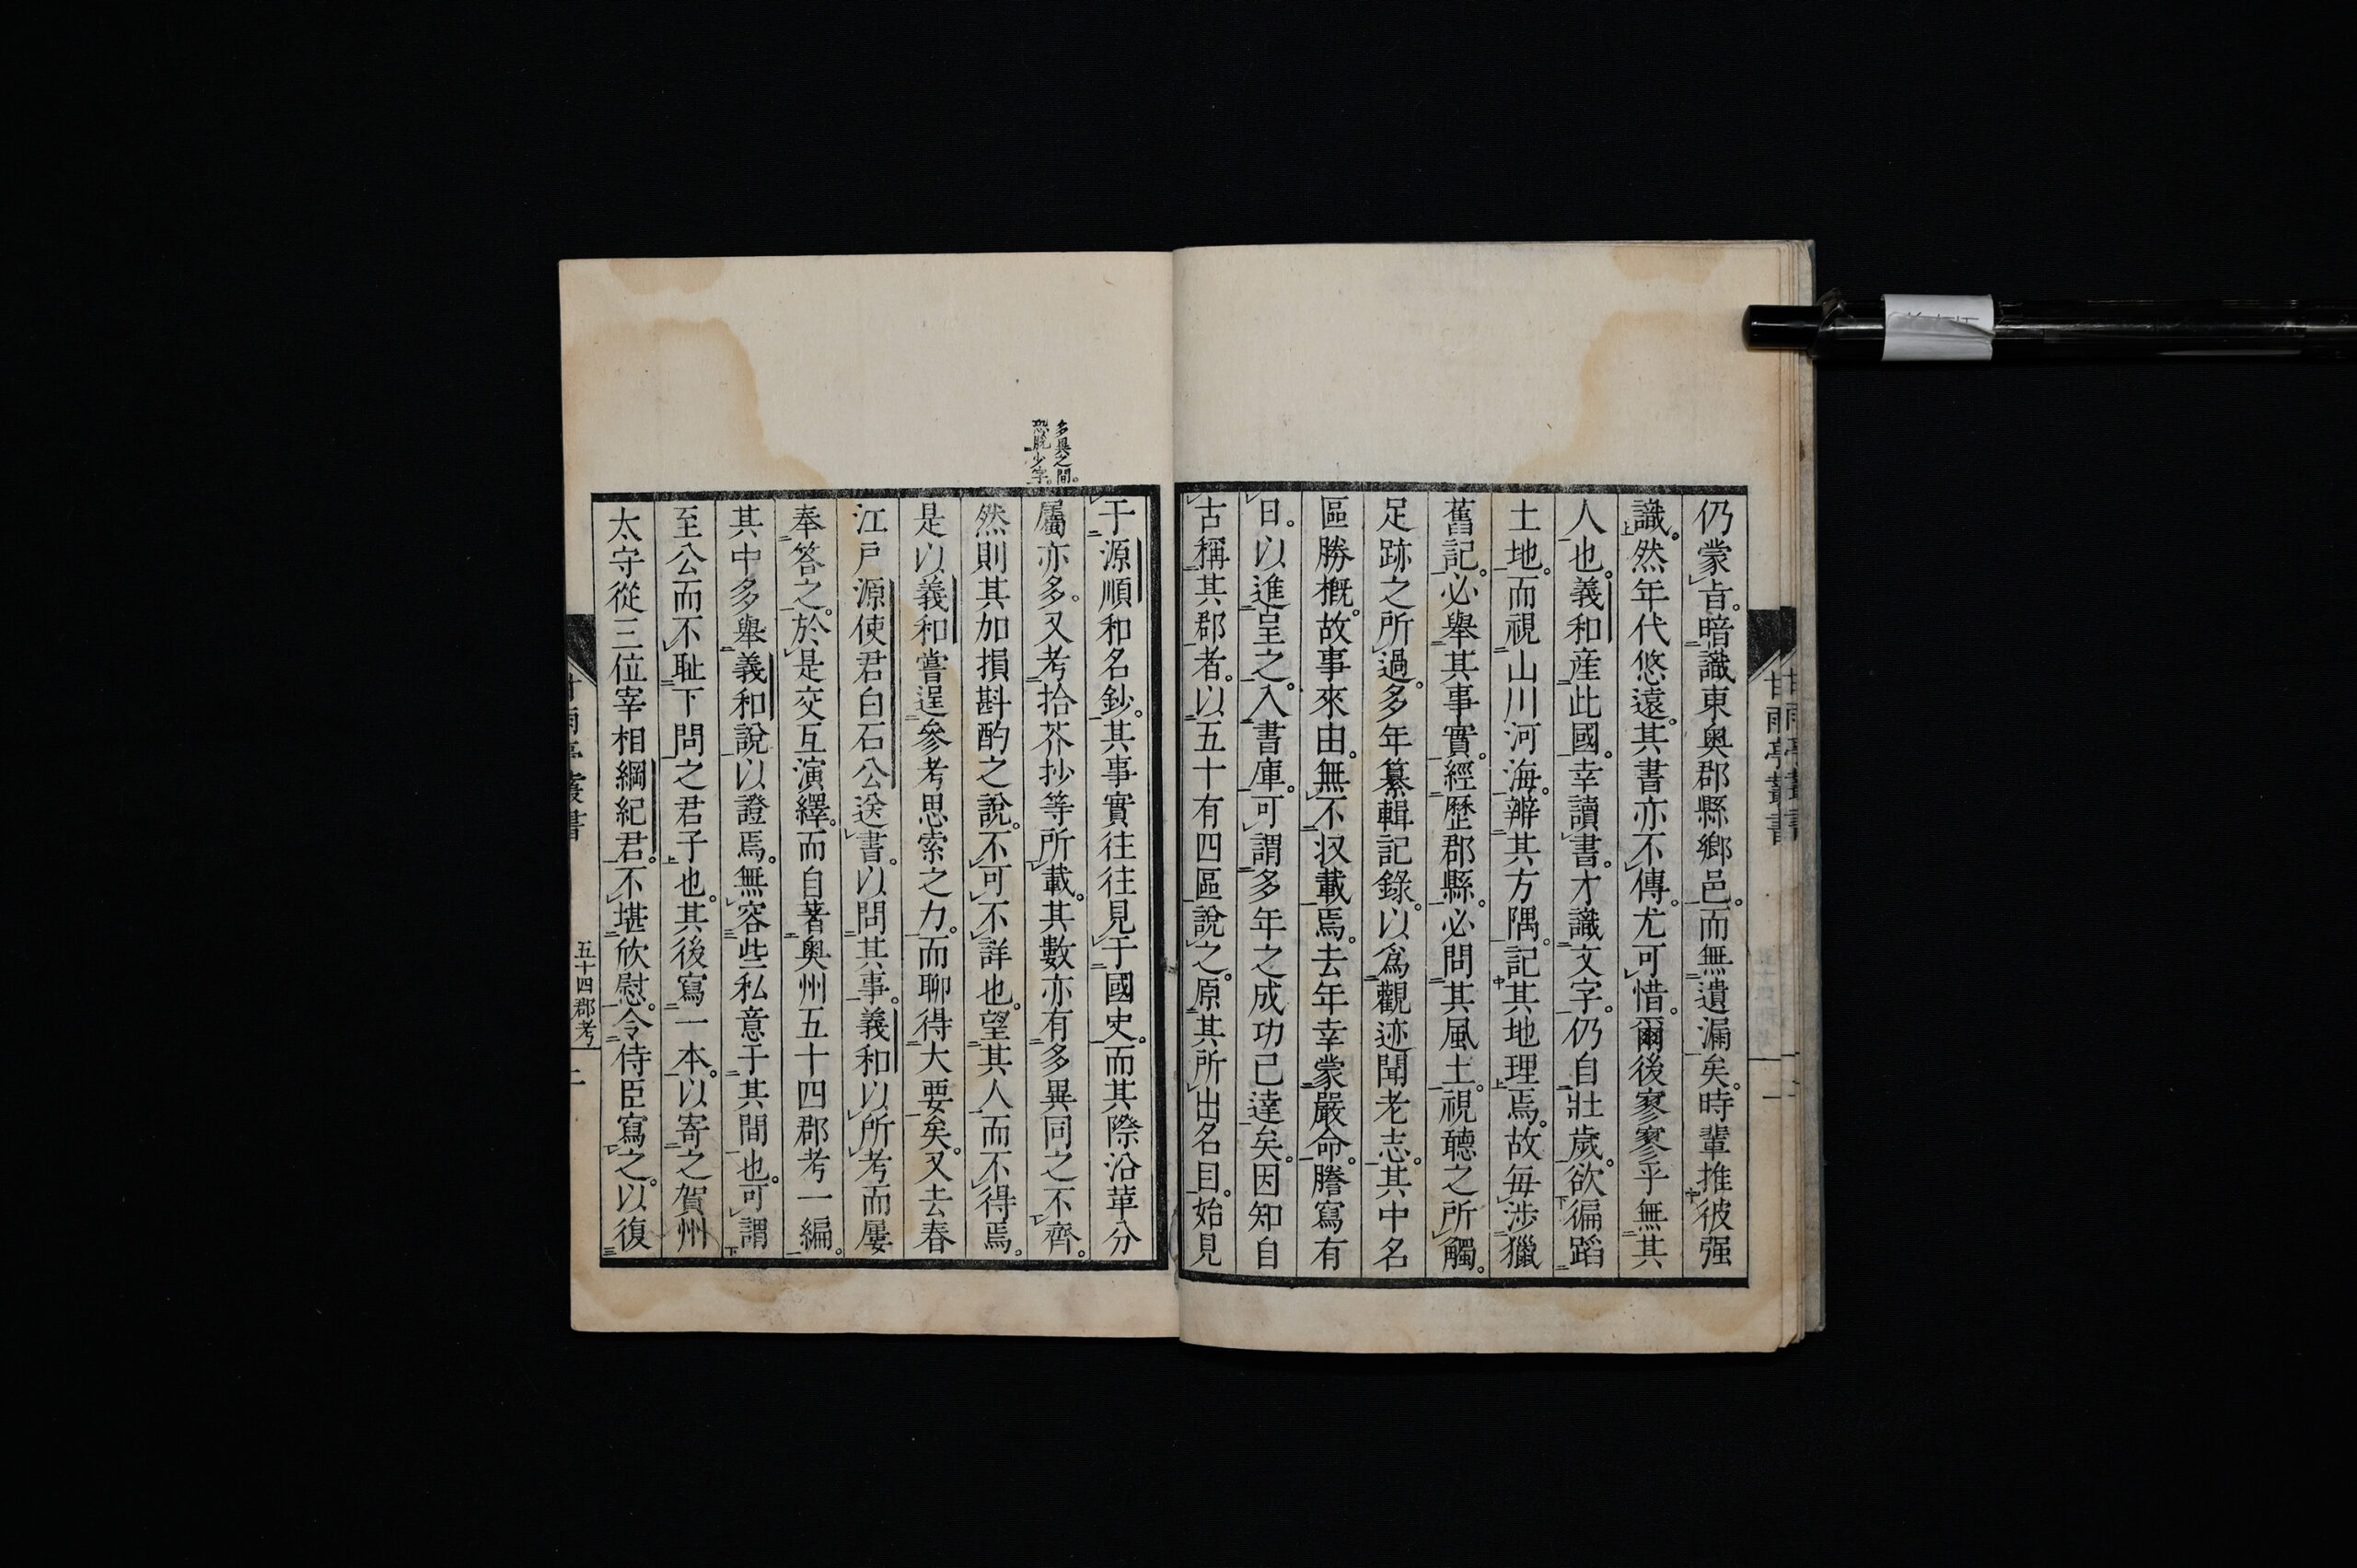 仍蒙旨。暗識東奥郡縣鄉邑。而無遺漏矣。時輩推彼强
識。然年代悠遠。其書亦不傳。尤可惜。爾後寥寥乎無其
人也。義和産此國。幸讀書。才識文字。仍自壯歲。欲徧蹈
土地。而視山川河海。辨其方隅。記其地理焉。故每涉獵
舊記。必舉其事實。經歷郡縣。必問其風土。視聽之所觸。
足跡之所過。多年纂輯記錄。以爲觀迹聞老志。其中名
區勝概。故事來由。無不汊載焉。去年幸蒙嚴命。謄寫有
日。以進呈之。入書庫。可謂多年之成功已達矣。因知自
古稱其郡者。以五十有四區說之。原其所出名目。始見
甘雨亭叢書
多異之間。
恐脫少字。
于源順和名鈔。其事實往往見于國史。而其際沿革分
屬亦多。又考拾芥抄等所載。其數亦有多異同之不齊。
然則其加損斟酌之說。不可不詳也。望其人而不得焉。
是以義和嘗逞參考思索之力。而聊得大要矣。又去春
江戸源使君白石公送書。以問其事。義和以所考而屢
奉答之。於是交互演繹。而自著奥州五十四郡考一編。
其中多舉義和說以證焉。無容些私意于其間也。可謂
至公而不耻下問之君子也。其後寫一本。以寄之賀州
太守從三位宰相綱紀君。不堪欣慰。令侍臣寫之。以復
甘雨亭叢書
五十四郡考
二